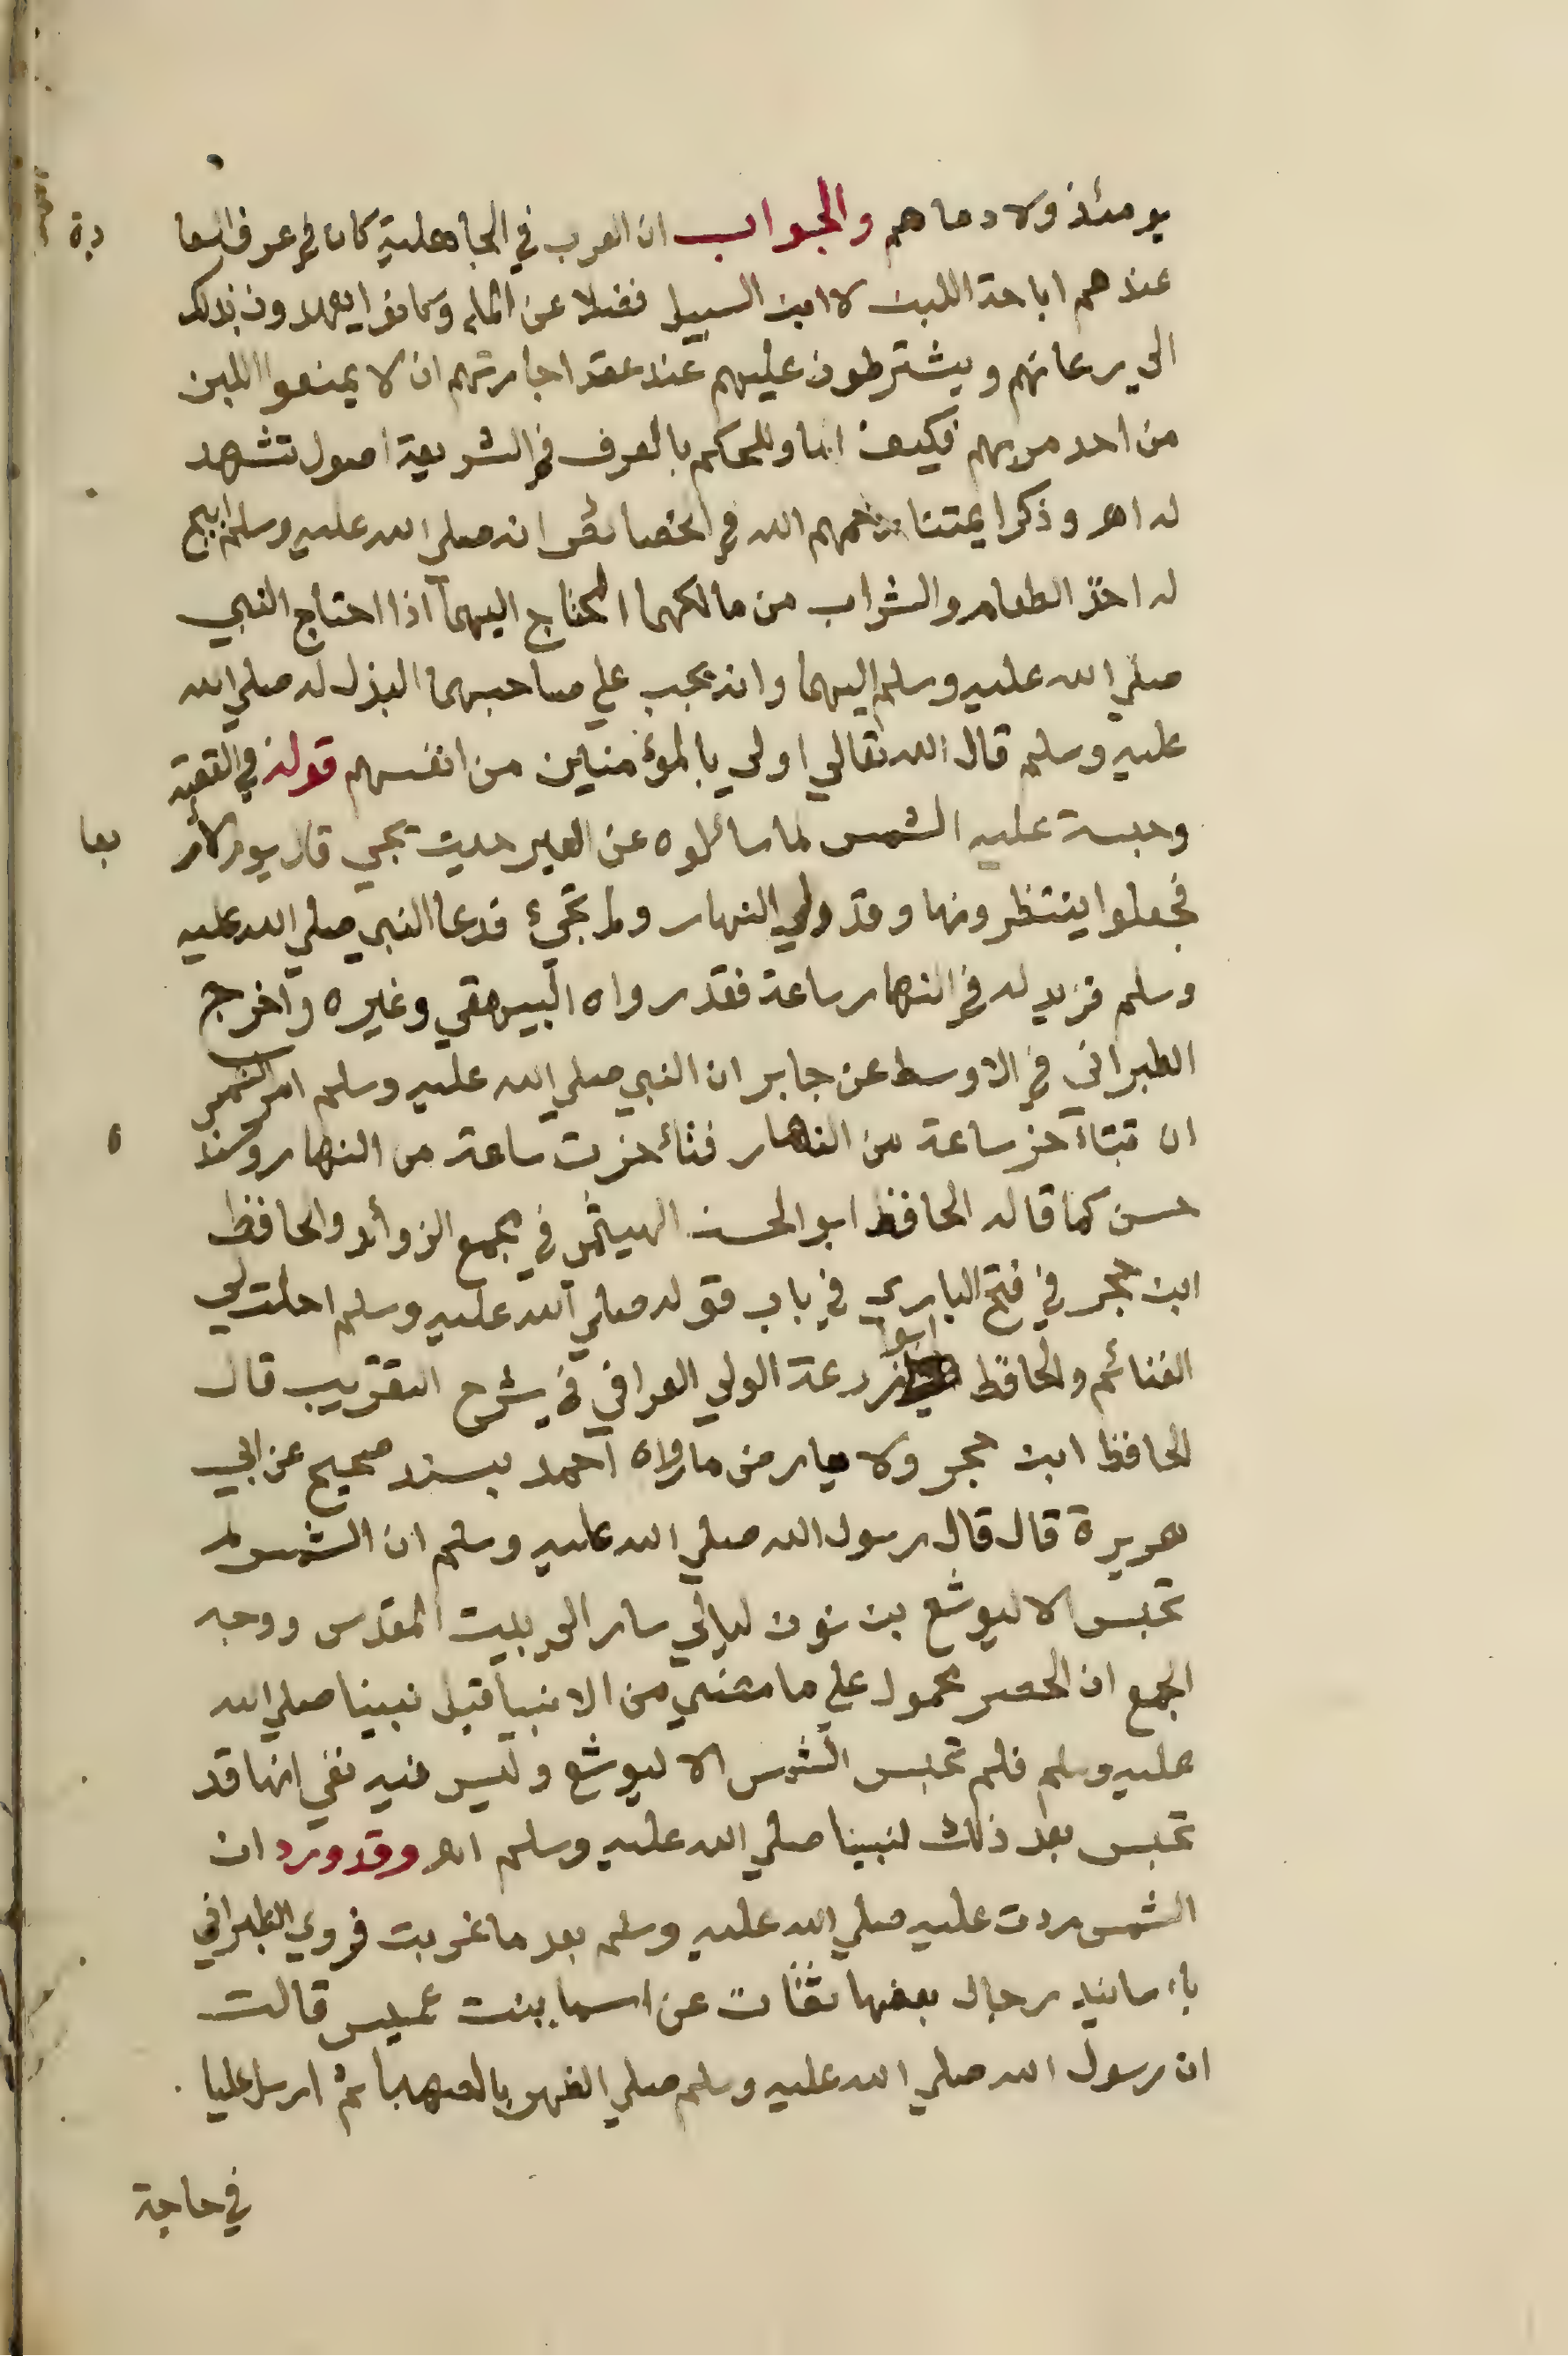 يومئذ ولا دماهم والجواب ان العرب في الجاهلية كان في عرف العا دة
عندهم اباحة اللبن لابن السبيل فضلا عن الماء وكانوا يعهدون بذلك
الي رعاتهم ويشترطون عليهم عند عقد اجارتهم ان لا يمنعوا اللبن
من احد مر بهم فكيف وللحكم بالعرف في الشريعة اصول تشهد
له اهـ وذكر ايمتنا رحمهم الله في الخصائص انه صلي الله عليه وسلم ابيح
له اخذ الطعام والشراب من مالكهما المحتاج اليهما اذا احتاج النبي
صلي الله عليه وسلم اليهما وانه يجب علي صاحبهما البذل له صلي الله
عليه وسلم قال الله تعالي اولي بالمؤمنين من انفسهم قوله في القصة
وحبسة عليه الشمس لما سائلوه عن العير حديث تجي قال يوم الأر بعا
فجعلوا ينتظرونها وقد ولي النهار ولم تجيء فدعا النبي صلي الله عليه
وسلم فزيد له في النهار ساعة فقد رواه البيهقي وغيره واخرج
الطبراني في الاوسط عن جابر ان النبي صلي الله عليه وسلم امر الشمس
ان تتأخر ساعة من النهار فتأخرت ساعة من النهار وسند ه
حسن كما قاله الحافظ ابو الحسن الهيثمي في مجمع الزوأد والحافظ
ابن حجر في فتح الباري في باب قوله صلي الله عليه وسلم احلت لي
الغنائم والحافظ ابوا زرعة الولي العراقي في شرح التقريب قال
الحافظ ابن حجر ولا يعارض ما رواه احمد بسند صحيح عن ابي
هريرة قال قال رسول الله صلي الله عليه وسلم ان الشمس لم
تحبس الا ليوشع بن نون ليالي سار الي بيت المقدس ووجه
الجمع ان الحصر محمول علي ما مضي من الانبيا قبل نبينا صلي الله
عليه وسلم فلم تحبس الشمس الا ليوشع وليس فيه نفي انها قد
تحبس بعد ذلك لنبينا صلي الله عليه وسلم اهـ وقد ورد ان
الشمس ردت عليه صلي الله عليه وسلم بعد ما غربت فروي الطبراني
باء سانيد رجال بعضها ثقات عن اسما بنت عميس قالت
ان رسول الله صلي الله عليه وسلم صلي الظهر بالصهبا ثم ارسل عليا
في حاجة